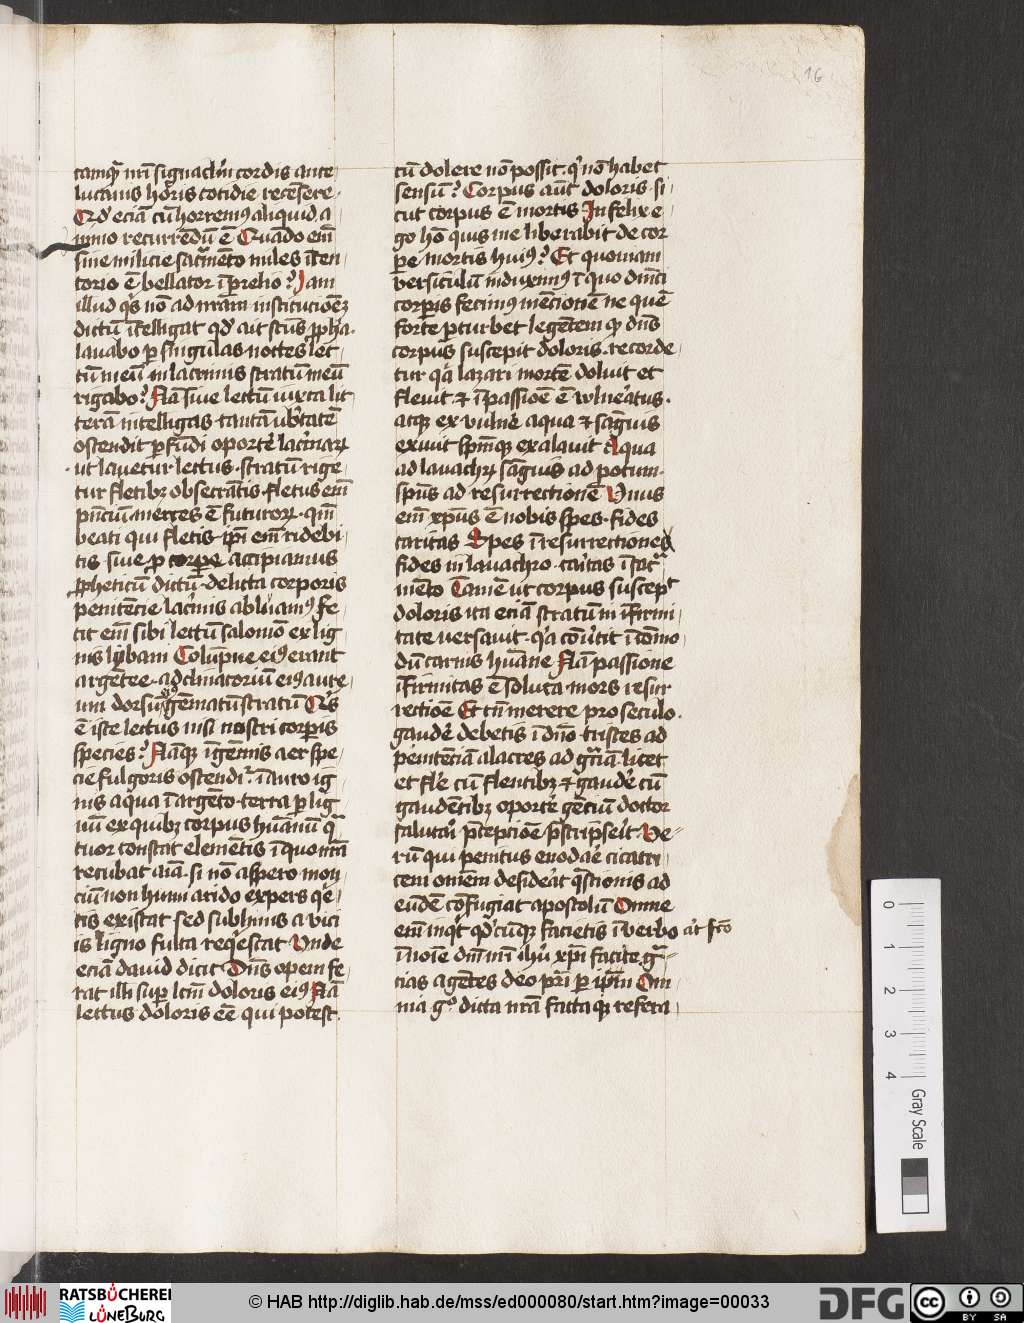 16
tamq̄ nr̄i signaclm̄ cordis ante
lucanis horis cotidie recēsere
Qd̓ eciā cū horremꝰ aliquid a
nimo recurrēdū ē Quādo em̄
sine milicie sacmēto miles ī ten
torio ē bellator ī prelio? Jam
illud q̓s nō ad nr̄am institucionēz
dictū ītelligat qd̓ ait scūs ꝓpha.
lauabo ꝑ singulas noctes lec
tū meū in lacrimis stratū meū
rigabo? Nā siue lectū iuxta lit
terā intelligas tantā vb̓tatē
ostendit ꝑfūdi oportē lacrimarꝝ
ut lauetur lectus stratū rige
tur fletibꝫ obsecrātis fletus em̄
pn̄ciū merces ē futurorꝝ qm̄
beati qui fletis ip̄i em̄ ridebi
tis siue ꝓ corpe accipiamus
ꝓpheticū dictū delicta corporis
penitēcie lacīmis abluamꝰ fe
cit em̄ sibi lectū salomō ex lig
nis lybani Colūpne eiꝰ erant
argētee acclinatoriū eiꝰ aure
um dorsū eiꝰ gēmatū stratū Q̓s
ē iste lectus nisi nostri corꝑis
species? Nāqꝫ ī gēmis aer spe
cie fulgoris ostendir̄ ī auro ig
nis aqua ī argēto terra ꝑ lig
nū ex quibꝫ corpus hūanū q̄
tuor constat elemētis ī quo nr̄a
recubat aīa si nō aspero mon
ciū non humi arido expers q̓e
tis existat sed sublimis a vici
is ligno fulta req̓escat Vnde
eciā dauid dicit Dn̄s opem fe
rat illi suꝑ lc̄m doloris eiꝰ Nā
lectus doloris eē qui potest
cū dolere nō possit q̓ nō habet
sensū? Corpus aūt doloris si
cut corpus ē mortis Jnfelix e
go hō quis me liberabit de cor
ꝑe mortis huiꝰ? Et quoniam
versiculū induximꝰ ī quo dn̄ici
corꝑis fecimꝰ mēcionē ne quē
forte ꝑturbet legētem qꝫ dn̄s
corpus suscepit doloris recorde
tur q̓a lazari mortē doluit et
fleuit ⁊ ī passiōe ē vulneratus
atqꝫ ex vulnē aqua ⁊ sāguis
exiuit spm̄qꝫ exalauit Aqua
ad lauachrꝝ sāguis ad potum
spūs ad resurrectionē Vnus
em̄ xp̄us ē nobis spes fides
caritas Spes ī resurrectiones
fides in lauachro caritas ī sac̄
mēto Tamē ut corpus suscepᵗ
doloris ita eciā stratū in īfirmi
tate uersauit q̓a cōu̓tit ī cōmo
dū carnis hūane Nā passione
īfirmitas ē soluta mors resur
rectiōe Et tn̄ merere pro seculo
gaudē debetis ī dn̄o tristes ad
penitēciā alacres ad gr̄iā licet
et flēe cū flentibꝫ ⁊ gaudē cū
gaudētibꝫ oportē gēciū doctor
salutari p̄cepciōe p̄scripserit Ve
rū qui penitus enodaē cicatri
cem omēm desideāt q̄stionis ad
eūdē cōfugiat apostolū Omne
em̄ inq̓t qd̓cūqꝫ facietis ī verbo aūt fc̄o
ī noīe dn̄i nr̄i ih̄u xp̄i facite gr̄a
cias agētes deo pr̄i ꝑ ip̄m Om
nia gͦ dicta nr̄a facta qꝫ refera
0
1
2
3
4
Gray Scale
RATSBÜCHEREI
LÜNEBURG
© HAB http://diglib.hab.de/mss/ed000080/start.htm?image=00033
DFG
cc
BY SA